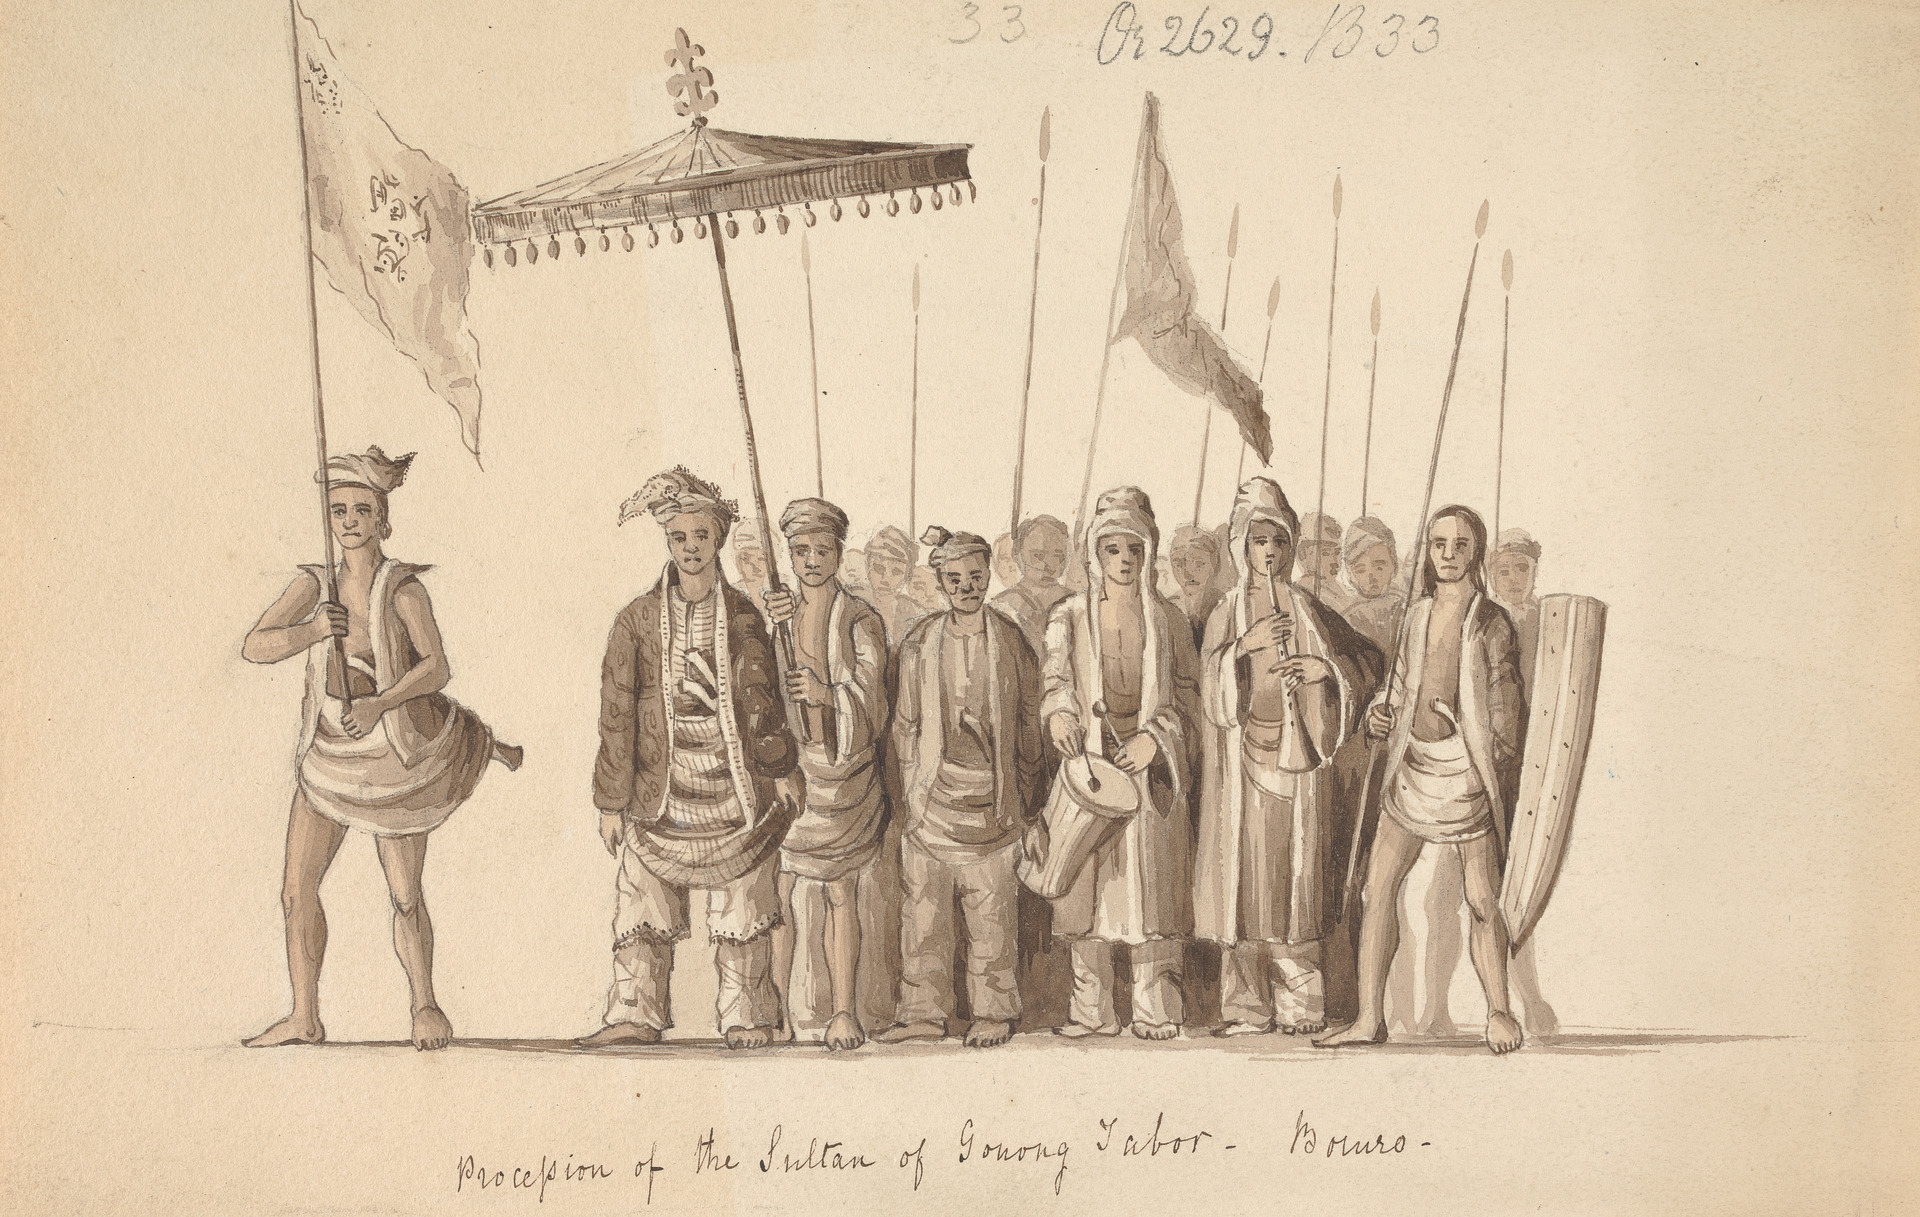 33 Or 2629. B 33
Procession of the Sultan of Gonong Tabor - Bouro -